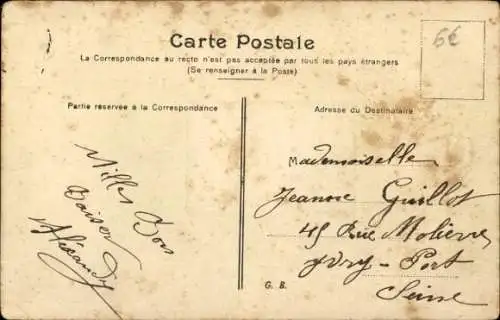 Carte Postale
La Correspondance au recto n'est pas acceptée par tous les pays étrangers
(Se renseigner à la Poste)
6€
Partie réservée à la Correspondance
Milles Bons
Baisers
Alexandre
Adresse du Destinataire
Mademoiselle
Jeanne Guillot
45 Rue Molière
Ivry-Port
Seine
G. B.